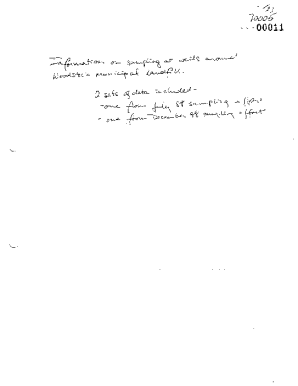 70006
00011
Information on sampling at wells around
Municipal Landfill.
2 sets of data included-
-one from July 88 sampling effort
- one from December 88 sampling effort